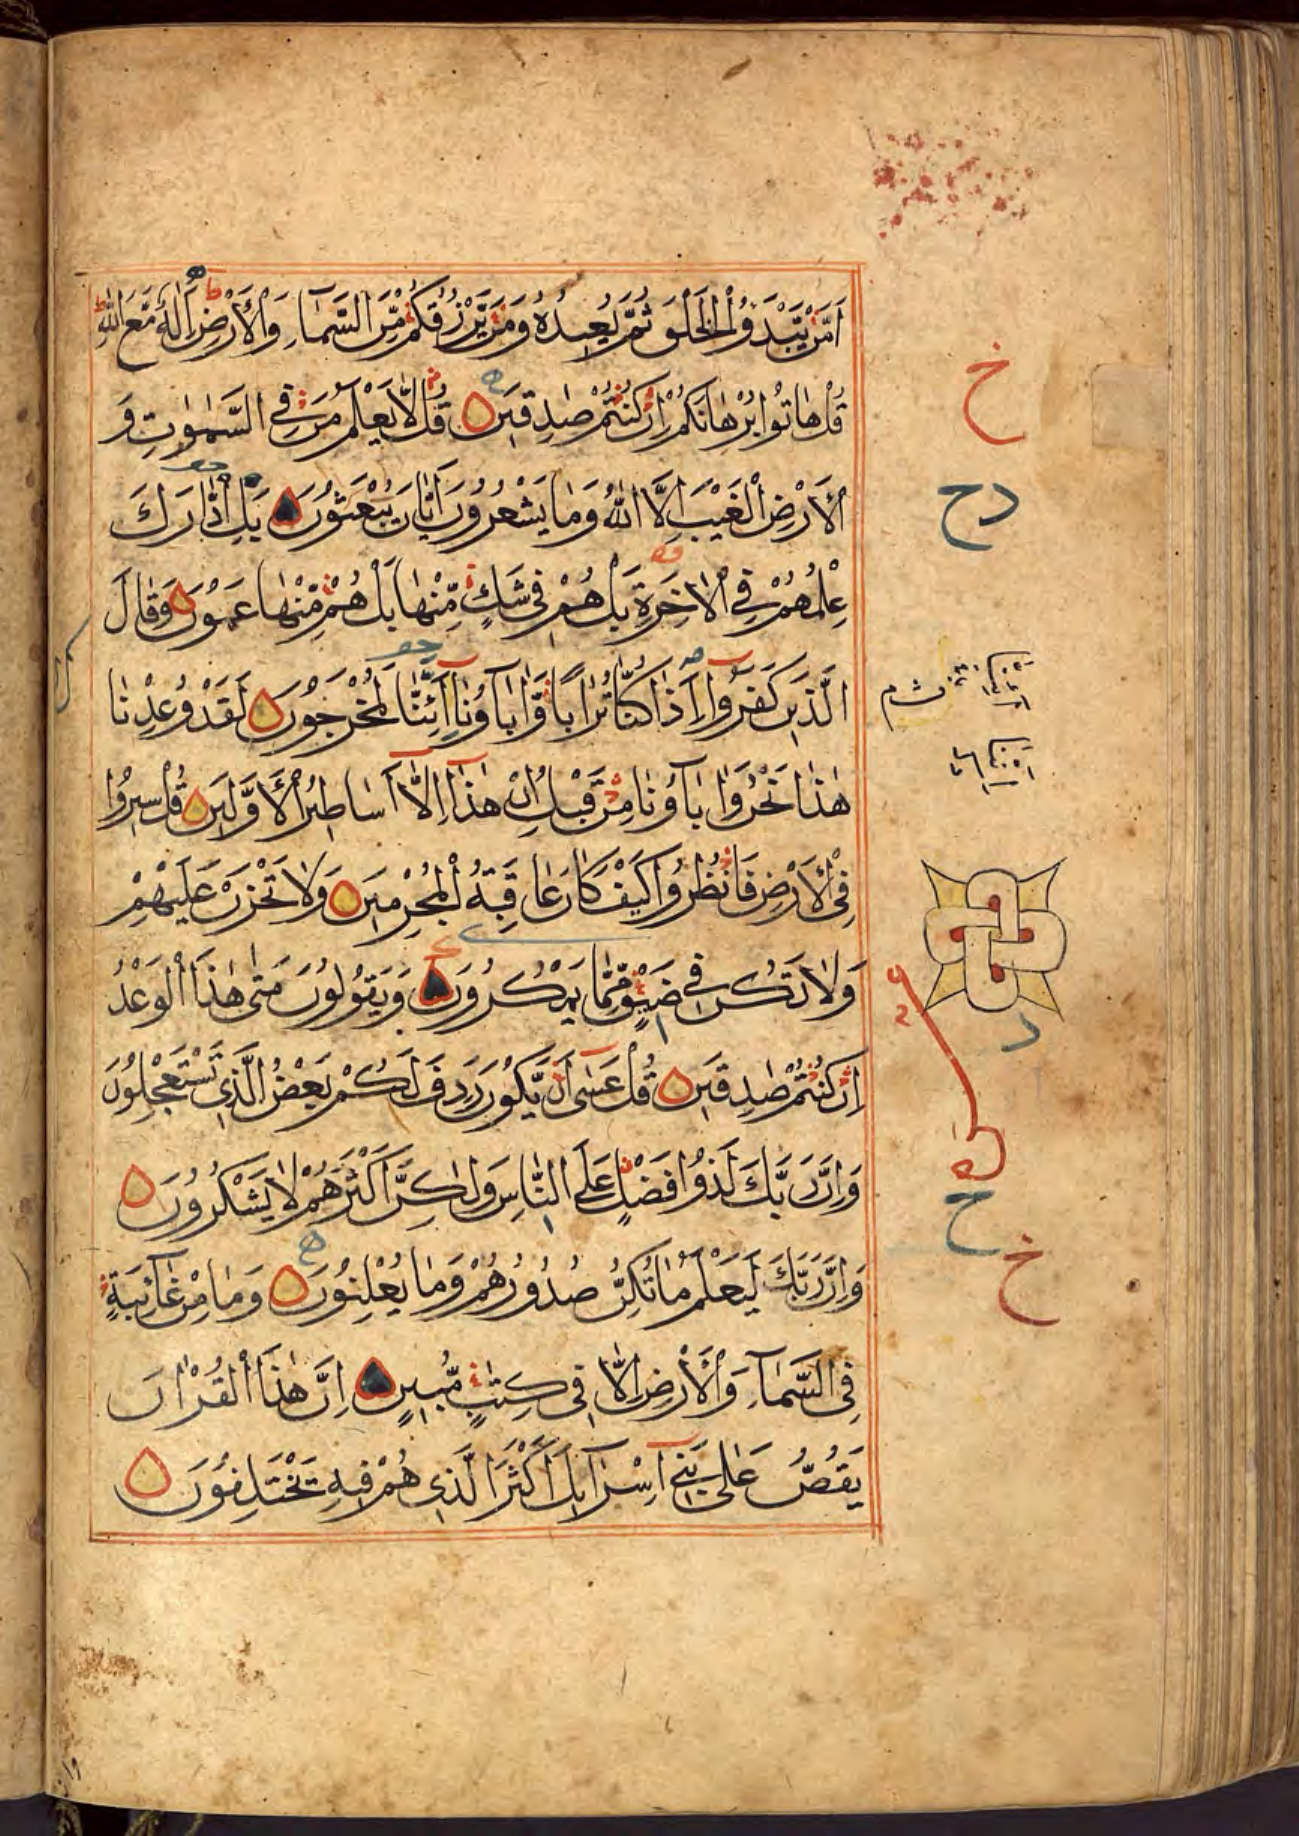 اَمَّنْ يَّبْدَؤُا الْخَلْقَ ثُمَّ يُعِيْدُهٗ وَمَنْ يَّرْزُقُكُمْ مِّنَ السَّمَآءِ وَالْاَرْضِ ءَاِلٰهٌ مَّعَ اللّٰهِ
قُلْ هَاتُوْا بُرْهَانَكُمْ اِنْ كُنْتُمْ صٰدِقِيْنَ قُلْ لَّا يَعْلَمُ مَنْ فِي السَّمٰوٰتِ وَ
الْاَرْضِ الْغَيْبَ اِلَّا اللّٰهُ وَمَا يَشْعُرُوْنَ اَيَّانَ يُبْعَثُوْنَ بَلِ ادّٰرَكَ
عِلْمُهُمْ فِي الْاٰخِرَةِ بَلْ هُمْ فِيْ شَكٍّ مِّنْهَا بَلْ هُمْ مِّنْهَا عَمُوْنَ وَقَالَ
الَّذِيْنَ كَفَرُوْا ءَاِذَا كُنَّا تُرَابًا وَّاٰبَآؤُنَا اَئِنَّا لَمُخْرَجُوْنَ لَقَدْ وُعِدْنَا
هٰذَا نَحْنُ وَاٰبَآؤُنَا مِنْ قَبْلُ اِنْ هٰذَآ اِلَّآ اَسَاطِيْرُ الْاَوَّلِيْنَ قُلْ سِيْرُوْا
فِي الْاَرْضِ فَانْظُرُوْا كَيْفَ كَانَ عَاقِبَةُ الْمُجْرِمِيْنَ وَلَا تَحْزَنْ عَلَيْهِمْ
وَلَا تَكُنْ فِيْ ضَيْقٍ مِّمَّا يَمْكُرُوْنَ وَيَقُوْلُوْنَ مَتٰى هٰذَا الْوَعْدُ
اِنْ كُنْتُمْ صٰدِقِيْنَ قُلْ عَسٰٓى اَنْ يَّكُوْنَ رَدِفَ لَكُمْ بَعْضُ الَّذِيْ تَسْتَعْجِلُوْنَ
وَاِنَّ رَبَّكَ لَذُوْ فَضْلٍ عَلَى النَّاسِ وَلٰكِنَّ اَكْثَرَهُمْ لَا يَشْكُرُوْنَ
وَاِنَّ رَبَّكَ لَيَعْلَمُ مَا تُكِنُّ صُدُوْرُهُمْ وَمَا يُعْلِنُوْنَ وَمَا مِنْ غَآئِبَةٍ
فِي السَّمَآءِ وَالْاَرْضِ اِلَّا فِيْ كِتٰبٍ مُّبِيْنٍ اِنَّ هٰذَا الْقُرْاٰنَ
يَقُصُّ عَلٰى بَنِيْٓ اِسْرَآئِلَ اَكْثَرَ الَّذِيْ هُمْ فِيْهِ يَخْتَلِفُوْنَ
خ
دح
ح
خ